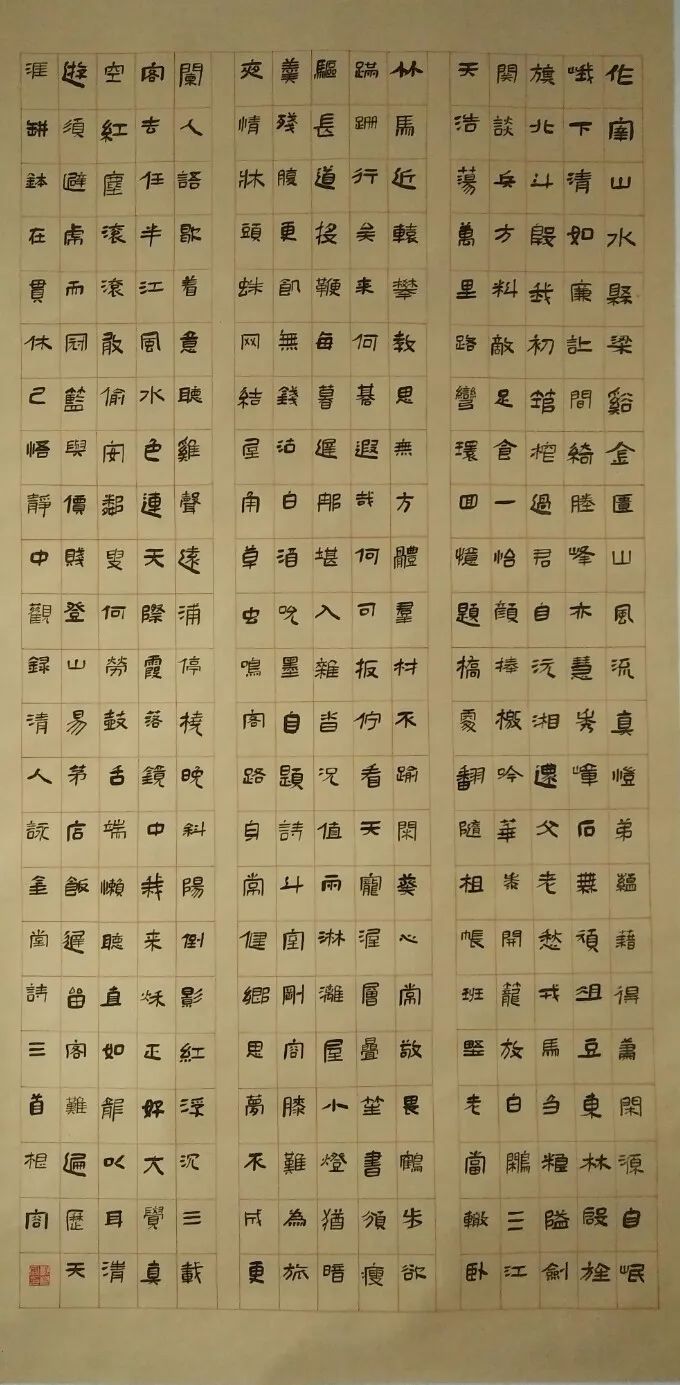 作宰山水縣梁谿金匱山風流真愷弟蘊藉得蕭閑源自岷
峨下清如廉讓間綺塍峰亦慧秀嶂石無頑俎豆東林啟旌
旗北斗殷我初筦榷過君自沅湘還父老愁戎馬芻糧隘劍
関談兵方料敵足食一怡顏捧檄吟華黍開籠放白鷴三江
天浩蕩萬里路彎環回憶題橋處翻隨祖帳班堅老當轍臥
竹馬近轅攀教思無方體羣材不踰閑葵心常敬畏鶴步欲
蹣跚行矣来何暮遐哉何可扳佇看天寵渥層疊笙書頒瘦
驅長道投鞭每暮遲那堪入雜沓況值雨淋灕屋小燈猶暗
羹殘腹更飢無錢沽白酒吮墨自題詩斗室剛容膝難為旅
夾情牀頭蛛网結屋角草虫鳴客路身常健鄉思夢不成更
闌人語歇着意聽雞聲遠浦停橈晚斜陽倒影紅浮沉三載
客去任半江風水色連天際霞落鏡中我来秌正好大覺真
空紅塵滾滾敢偷安鄰叟何勞鼓舌端懶聽直如能以耳清
遊須避虎而冠籃輿價賤登山易茅店飯遲留客難遍歷天
涯缾鉢在貫休已悟靜中觀録清人詠奎堂詩三首根容